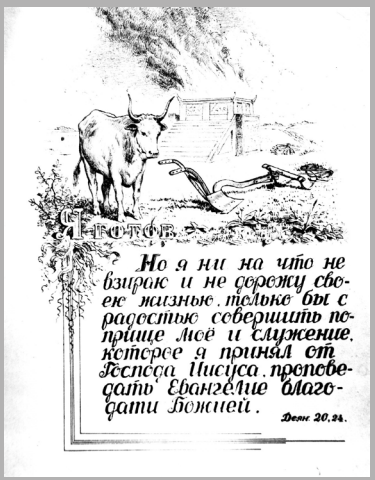 Я готов
Но я ни на что не
взираю и не дорожу сво-
ею жизнью, только бы с
радостью совершить по-
прище моё и служение,
которое я принял от
Господа Иисуса, пропове-
дать Евангелие благо-
дати Божией.
Деян. 20,24.